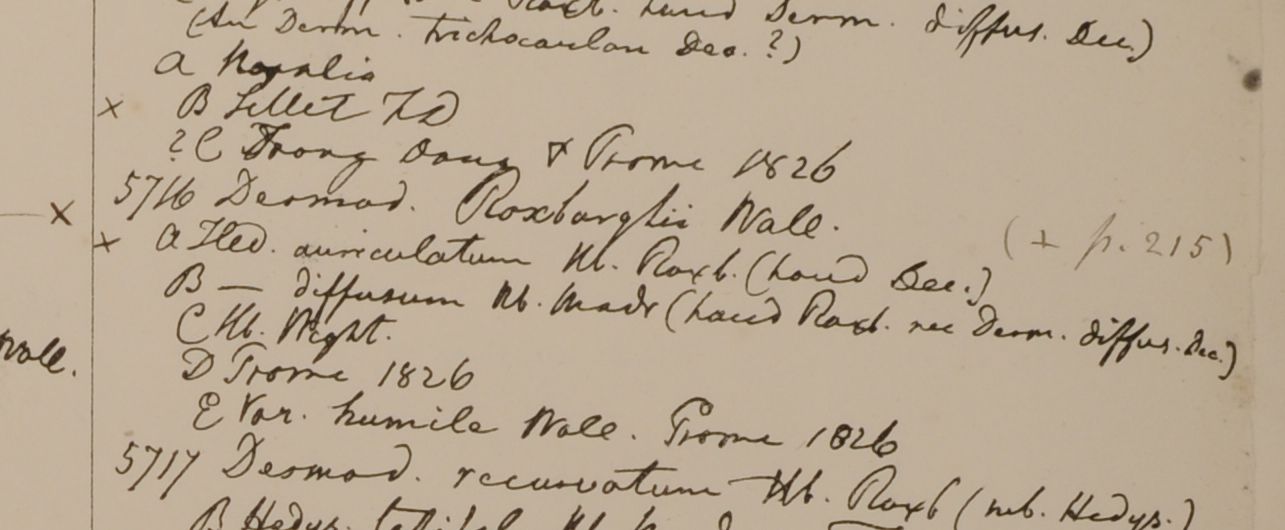 Roxb. haud Desm. diffus. Dec.)
(An Desm. trichocaulon Dec. ?)
a Napalia
x B Sillet FD
? C Trong dong & Prome 1826
x 5716 Desmod. Roxburghii Wall.
(+ p. 215)
x a Hed. auriculatum Hb. Roxb. (haud Dec.)
B — diffusum Hb. Madr (haud Roxb. nec Desm. diffus. Dec.)
C Hb. Wight.
Wall.
D Prome 1826
E Var. humile Wall. Prome 1826
5717 Desmod. recurvatum Hb. Roxb (sub. Hedys.)
B Hedys. Hb.